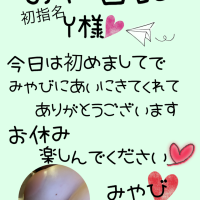 初指名
Y様
今日は初めましてで
みやびにあいにきてくれて
ありがとうございます
お休み
楽しんでください
みやび